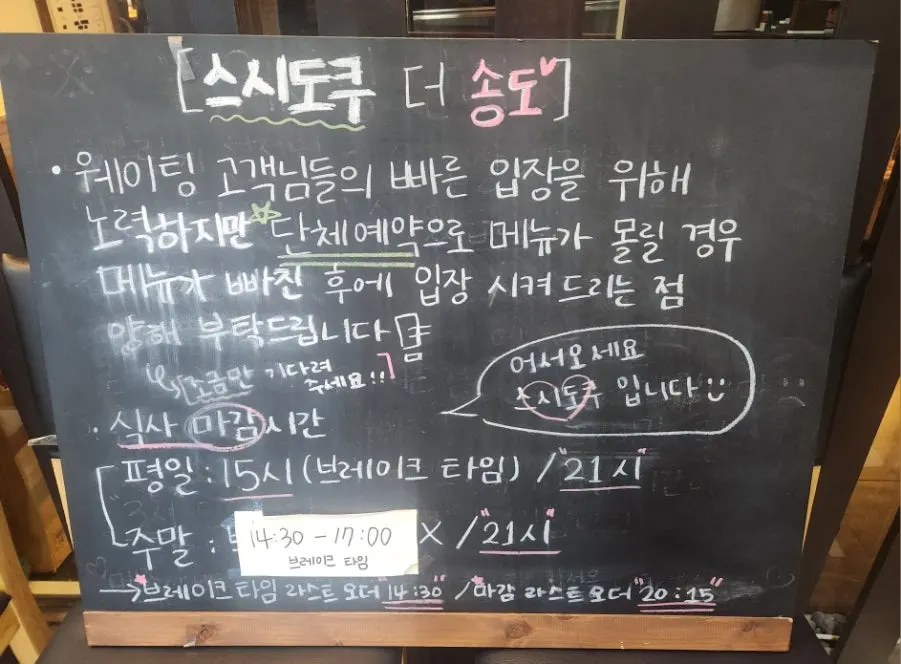 [스시도쿠 더 송도]
· 웨이팅 고객님들의 빠른 입장을 위해
노력하지만 단체예약으로 메뉴가 몰릴 경우
메뉴가 빠친 후에 입장 시켜드리는 점
양해 부탁드립니다
조금만 기다려
주세요!!
어서오세요
스시도쿠 입니다
· 식사 마감시간
평일 : 15시 (브레이크 타임) / "21시"
주말 : 14:30 - 17:00 X / "21시"
브레이크 타임
→ 브레이크타임 라스트오더 "14:30" / 마감 라스트오더 "20:15"